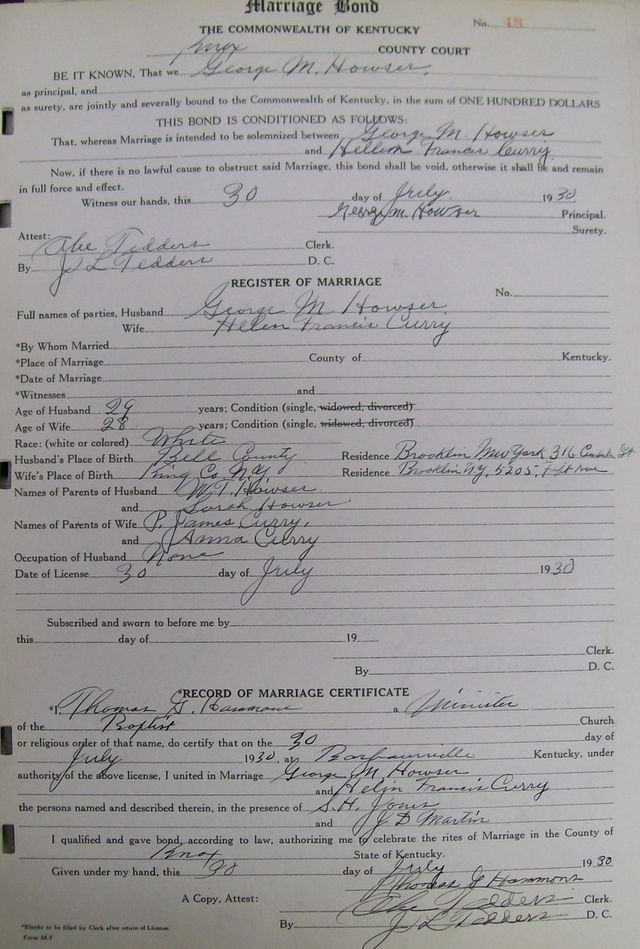 Marriage Bond
No. 48
THE COMMONWEALTH OF KENTUCKY
Knox COUNTY COURT
BE IT KNOWN, That we George M. Howser,
as principal, and
as surety, are jointly and severally bound to the Commonwealth of Kentucky, in the sum of ONE HUNDRED DOLLARS
THIS BOND IS CONDITIONED AS FOLLOWS:
That, whereas Marriage is intended to be solemnized between George M. Howser
and Hellen Francis Curry
Now, if there is no lawful cause to obstruct said Marriage, this bond shall be void, otherwise it shall be and remain
in full force and effect.
Witness our hands, this 30 day of July 1930
George M. Howser Principal.
Surety.
Attest:
Abe Tedders Clerk.
By J L Tedders D. C.
REGISTER OF MARRIAGE
No.
Full names of parties, Husband George M. Howser
Wife Helen Francis Curry
*By Whom Married
*Place of Marriage County of Kentucky.
*Date of Marriage
*Witnesses and
Age of Husband 29 years; Condition (single, widowed, divorced)
Age of Wife 28 years; Condition (single, widowed, divorced)
Race: (white or colored) White
Husband's Place of Birth Bell County Residence Brocklin New York 316
Wife's Place of Birth King Co N.Y. Residence Brocklin NY, 5205, Ave
Names of Parents of Husband W. T. Howser
and Sarah Howser
Names of Parents of Wife P. James Curry,
and Anna Curry
Occupation of Husband None
Date of License 30 day of July 1930
Subscribed and sworn to before me by
this day of 19
Clerk.
By D. C.
*RECORD OF MARRIAGE CERTIFICATE
*I, Thomas G. Hammons a Minister
of the Baptist Church
or religious order of that name, do certify that on the 30 day of
July 1930, at Barbourville Kentucky, under
authority of the above license, I united in Marriage George M. Howser
and Helen Francis Curry
the persons named and described therein, in the presence of S. H. Jones
and J D Martin
I qualified and gave bond, according to law, authorizing me to celebrate the rites of Marriage in the County of
Knox State of Kentucky.
Given under my hand, this day of July 1930
Thomas G Hammons
A Copy, Attest: Abe Tedders Clerk.
By J L Tedders D. C.
*Blanks to be filled by Clerk after return of License.
Form M-1